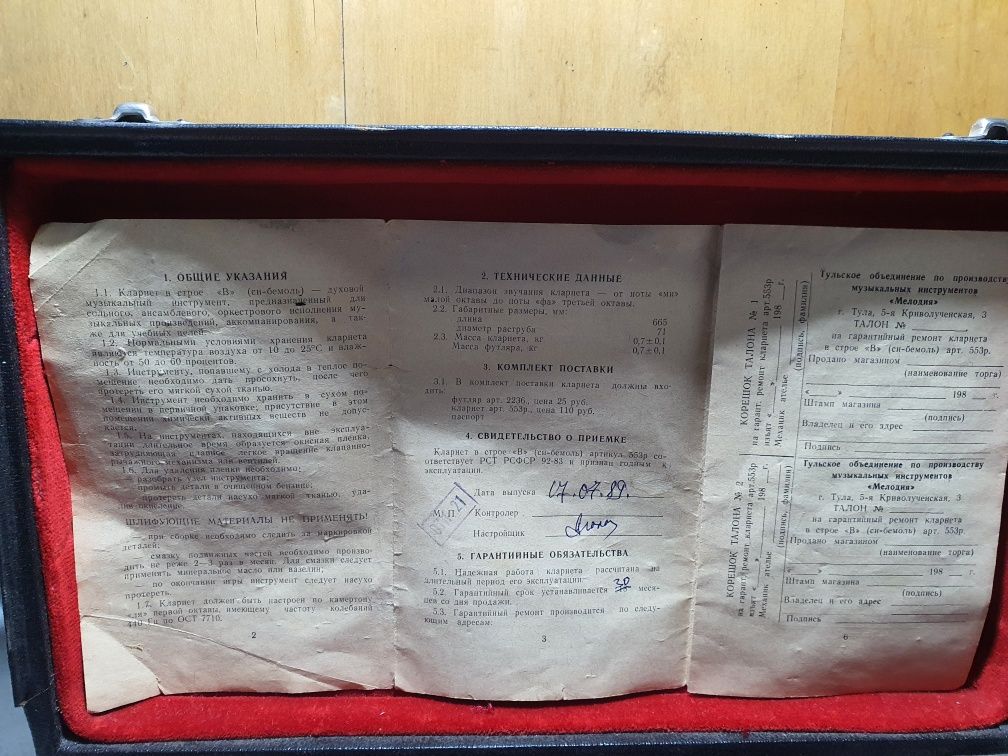 1. ОБЩИЕ УКАЗАНИЯ
1.1. Кларнет в строе «В» (си-бемоль) — духовой
музыкальный инструмент, предназначенный для
сольного, ансамблевого, оркестрового исполнения му-
зыкальных произведений, аккомпанирования, а так-
же для учебных целей.
1.2. Нормальными условиями хранения кларнета
являются температура воздуха от 10 до 25°С и влаж-
ность от 50 до 60 процентов.
1.3. Инструменту, попавшему с холода в теплое по-
мещение необходимо дать просохнуть, после чего
протереть его мягкой сухой тканью.
1.4. Инструмент необходимо хранить в сухом по-
мещении в первичной упаковке; присутствие в этом
помещении химически активных веществ не допус-
кается.
1.5. На инструментах, находящихся вне эксплуа-
тации длительное время образуется окисная пленка,
затрудняющая плавное легкое вращение клапанно-
рычажного механизма или вентилей.
1.6. Для удаления пленки необходимо:
разобрать узел инструмента;
промыть детали в очищенном бензине;
протереть детали насухо мягкой тканью, уда-
лив окисление.
ШЛИФУЮЩИЕ МАТЕРИАЛЫ НЕ ПРИМЕНЯТЬ!
при сборке необходимо следить за маркировкой
деталей;
смазку подвижных частей необходимо произво-
дить не реже 2—3 раз в месяц. Для смазки следует
применять минеральное масло или вазелин;
по окончании игры инструмент следует насухо
протереть.
1.7. Кларнет должен быть настроен по камертону
«ля» первой октавы, имеющему частоту колебаний
440 Гц по ОСТ 7710.
2
2. ТЕХНИЧЕСКИЕ ДАННЫЕ
2.1. Диапазон звучания кларнета — от ноты «ми»
малой октавы до ноты «фа» третьей октавы.
2.2. Габаритные размеры, мм:
длина 665
диаметр раструба 71
2.3. Масса кларнета, кг 0,7±0,1
Масса футляра, кг 0,7±0,1
3. КОМПЛЕКТ ПОСТАВКИ
3.1. В комплект поставки кларнета должны вхо-
дить:
футляр арт. 223б., цена 25 руб.
кларнет арт. 553р., цена 110 руб.
паспорт
4. СВИДЕТЕЛЬСТВО О ПРИЕМКЕ
Кларнет в строе «В» (си-бемоль) артикул 553р со-
ответствует РСТ РСФСР 92-83 и признан годным к
эксплуатации.
Дата выпуска 17.07.89.
М. П. Контролер
Настройщик
5. ГАРАНТИЙНЫЕ ОБЯЗАТЕЛЬСТВА
5.1. Надежная работа кларнета рассчитана на
длительный период его эксплуатации.
5.2. Гарантийный срок устанавливается меся-
цев со дня продажи.
5.3. Гарантийный ремонт производится по следу-
ющим адресам:
3
КОРЕШОК ТАЛОНА № 1
на гарант. ремонт кларнета арт.553р
изъят « » 198 г.
Механик ателье
(подпись, фамилия)
Тульское объединение по производству
музыкальных инструментов
«Мелодия»
г. Тула, 5-я Криволученская, 3
ТАЛОН №
на гарантийный ремонт кларнета
в строе «В» (си-бемоль) арт. 553р.
Продано магазином
(наименование торга)
« » 198 г.
Штамп магазина
(подпись)
Владелец и его адрес
Подпись
КОРЕШОК ТАЛОНА № 2
на гарант. ремонт кларнета арт.553р
изъят « » 198 г.
Механик ателье
(подпись, фамилия)
Тульское объединение по производству
музыкальных инструментов
«Мелодия»
г. Тула, 5-я Криволученская, 3
ТАЛОН №
на гарантийный ремонт кларнета
в строе «В» (си-бемоль) арт. 553р.
Продано магазином
(наименование торга)
« » 198 г.
Штамп магазина
(подпись)
Владелец и его адрес
Подпись
6